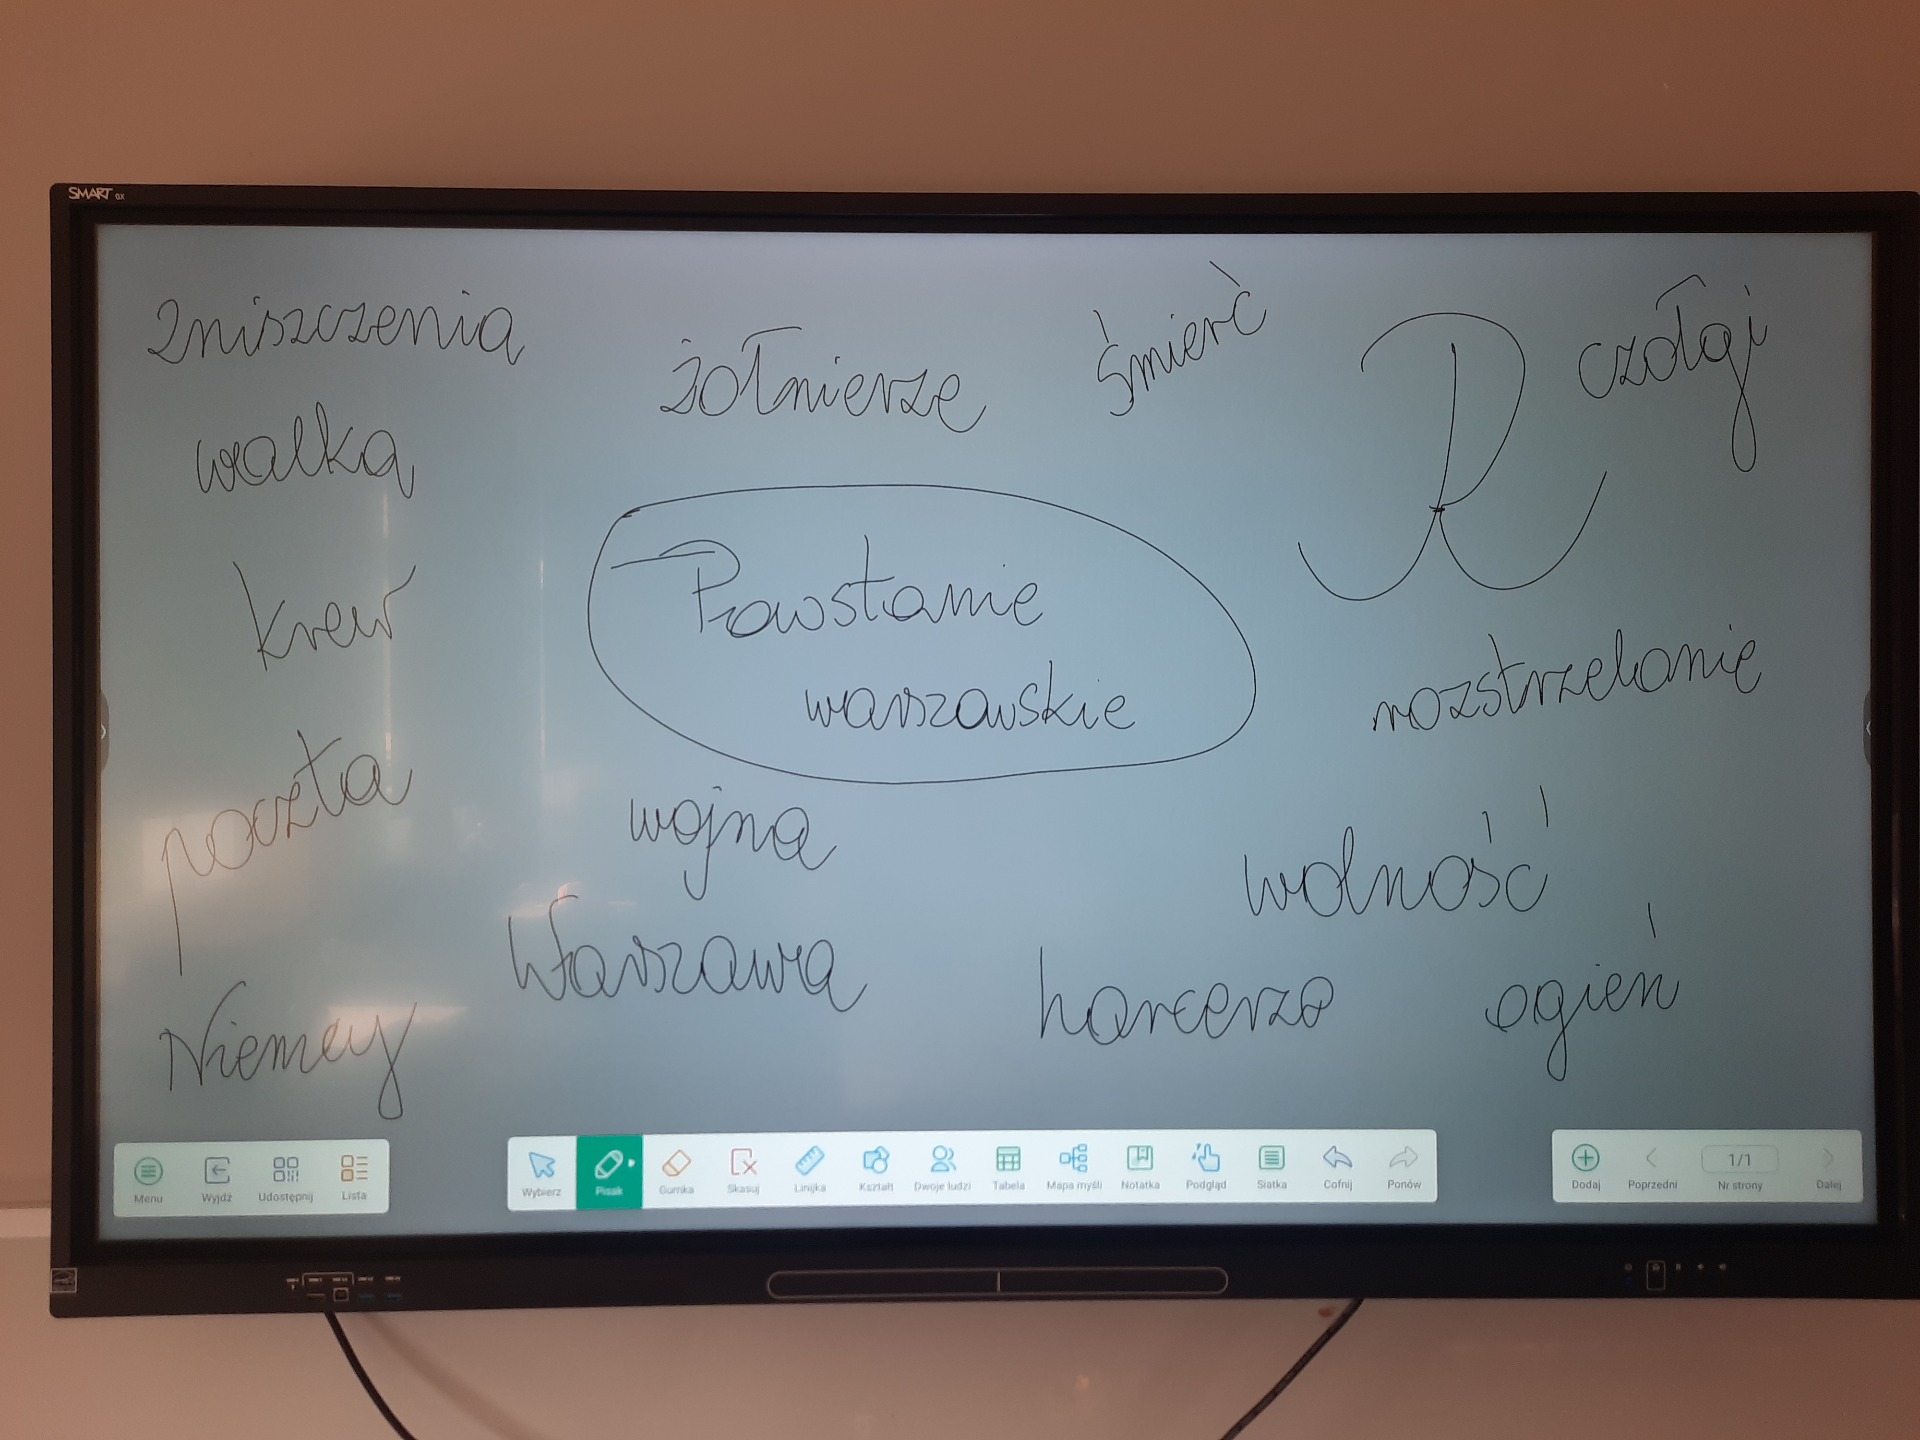 SMART GX
zniszczenia
żołnierze
śmierć
czołgi
walka
Powstanie
warszawskie
krew
rozstrzelanie
poczta
wojna
wolność
Warszawa
harcerze
ogień
Niemcy
Menu
Wyjdź
Udostępnij
Lista
Wybierz
Pisak
Gumka
Skasuj
Linijka
Kształt
Dwoje ludzi
Tabela
Mapa myśli
Notatka
Podgląd
Siatka
Cofnij
Ponów
Dodaj
Poprzedni
1/1
Nr strony
Dalej